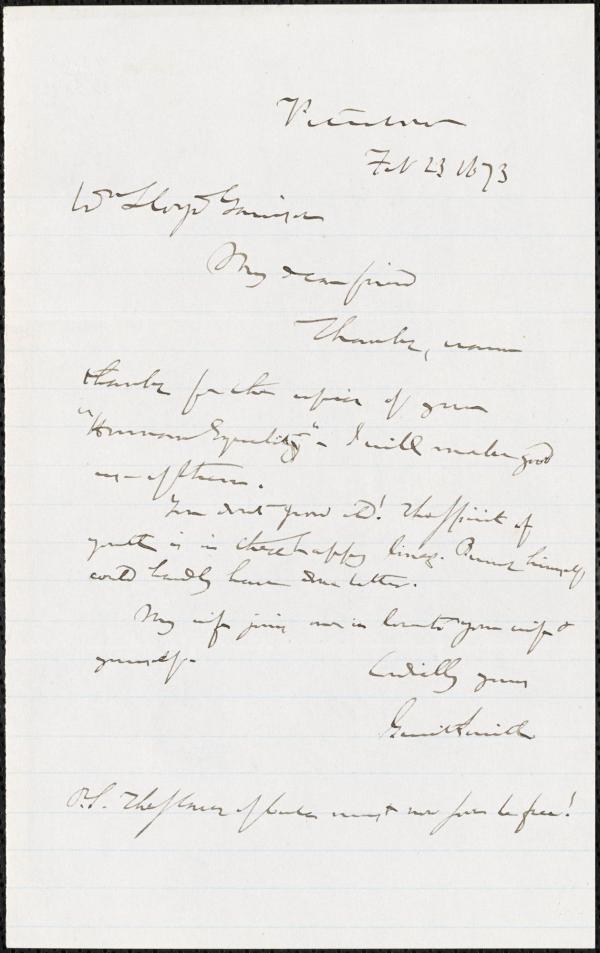 Peterboro
Feb 23 1873
Wm Lloyd Garrison
My dear friend
Thanks, warm
thanks for the copies of your
"Human Equality" - I will make good
use of them.
You dont grow old! The spirit of
youth is in these happy lines. Burns himself
could hardly have done better.
My wife joins me in love to your wife &
yourself.
Cordially yours
Gerrit Smith
P.S. The slaves of Cuba must now soon be free!